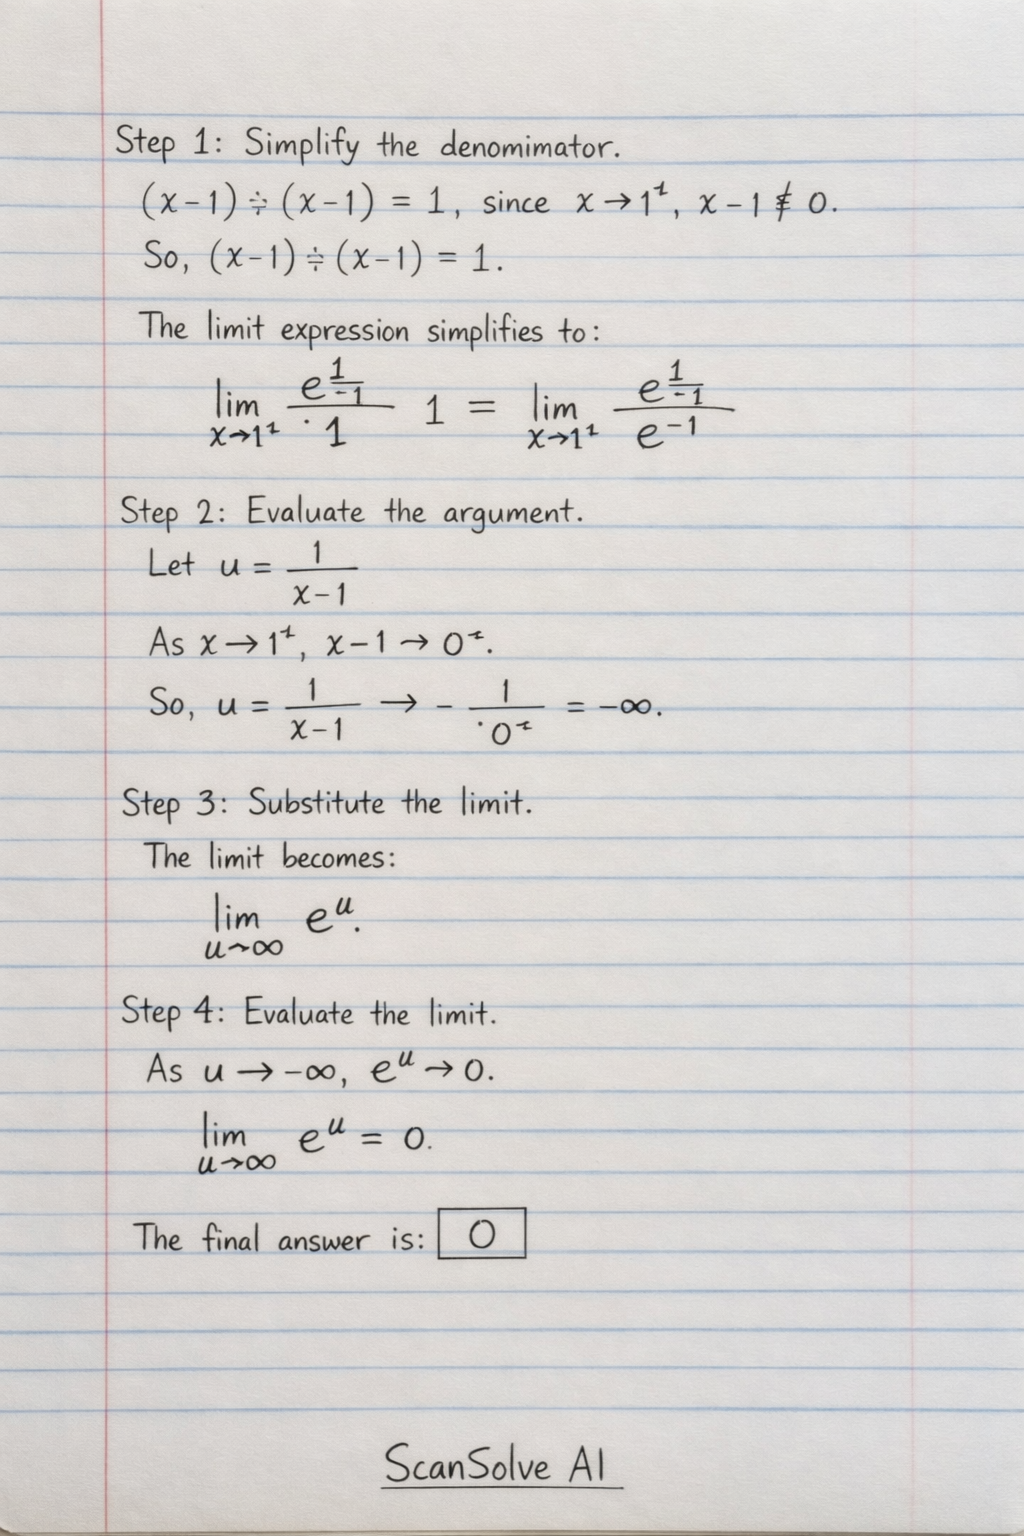 Step 1: Simplify the denomimator.
(x-1) ÷ (x-1) = 1, since x→1⁺, x-1 ≠ 0.
So, (x-1) ÷ (x-1) = 1.
The limit expression simplifies to:
lim x→1⁺ e^(1/-1) / ·1 1 = lim x→1⁺ e^(1/-1) / e⁻¹
Step 2: Evaluate the argument.
Let u = 1/(x-1)
As x→1⁺, x-1→0⁺.
So, u = 1/(x-1) → - 1/·0⁺ = -∞.
Step 3: Substitute the limit.
The limit becomes:
lim u→∞ eᵘ.
Step 4: Evaluate the limit.
As u→-∞, eᵘ→0.
lim u→∞ eᵘ = 0.
The final answer is: 0
ScanSolve AI